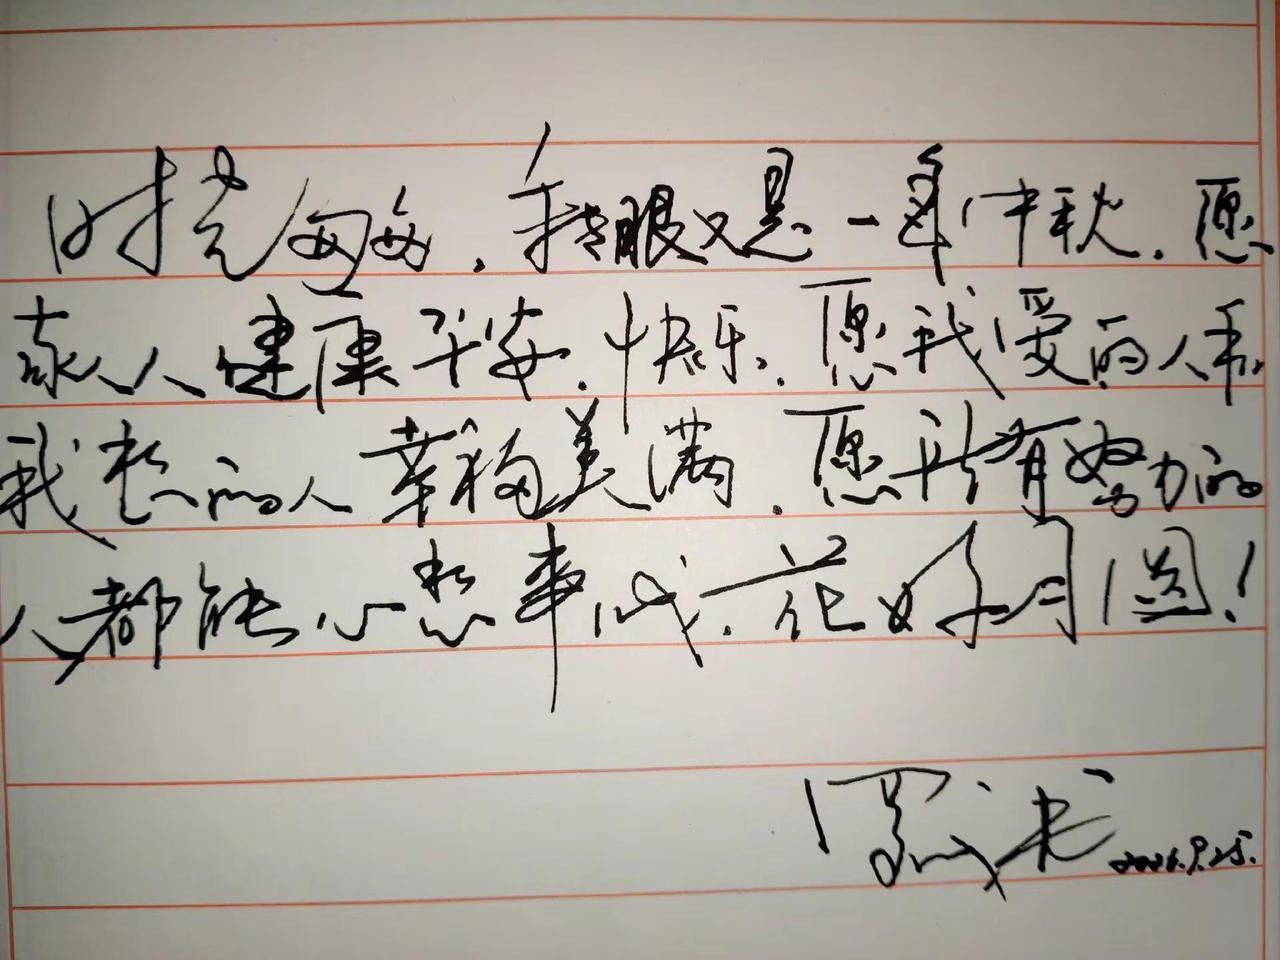 时光匆匆，转眼又是一年中秋，愿
家人健康平安，快乐，愿我爱的人和
我想的人幸福美满，愿所有努力的
人都能心想事成，花好月圆！
书 2026.9.25.